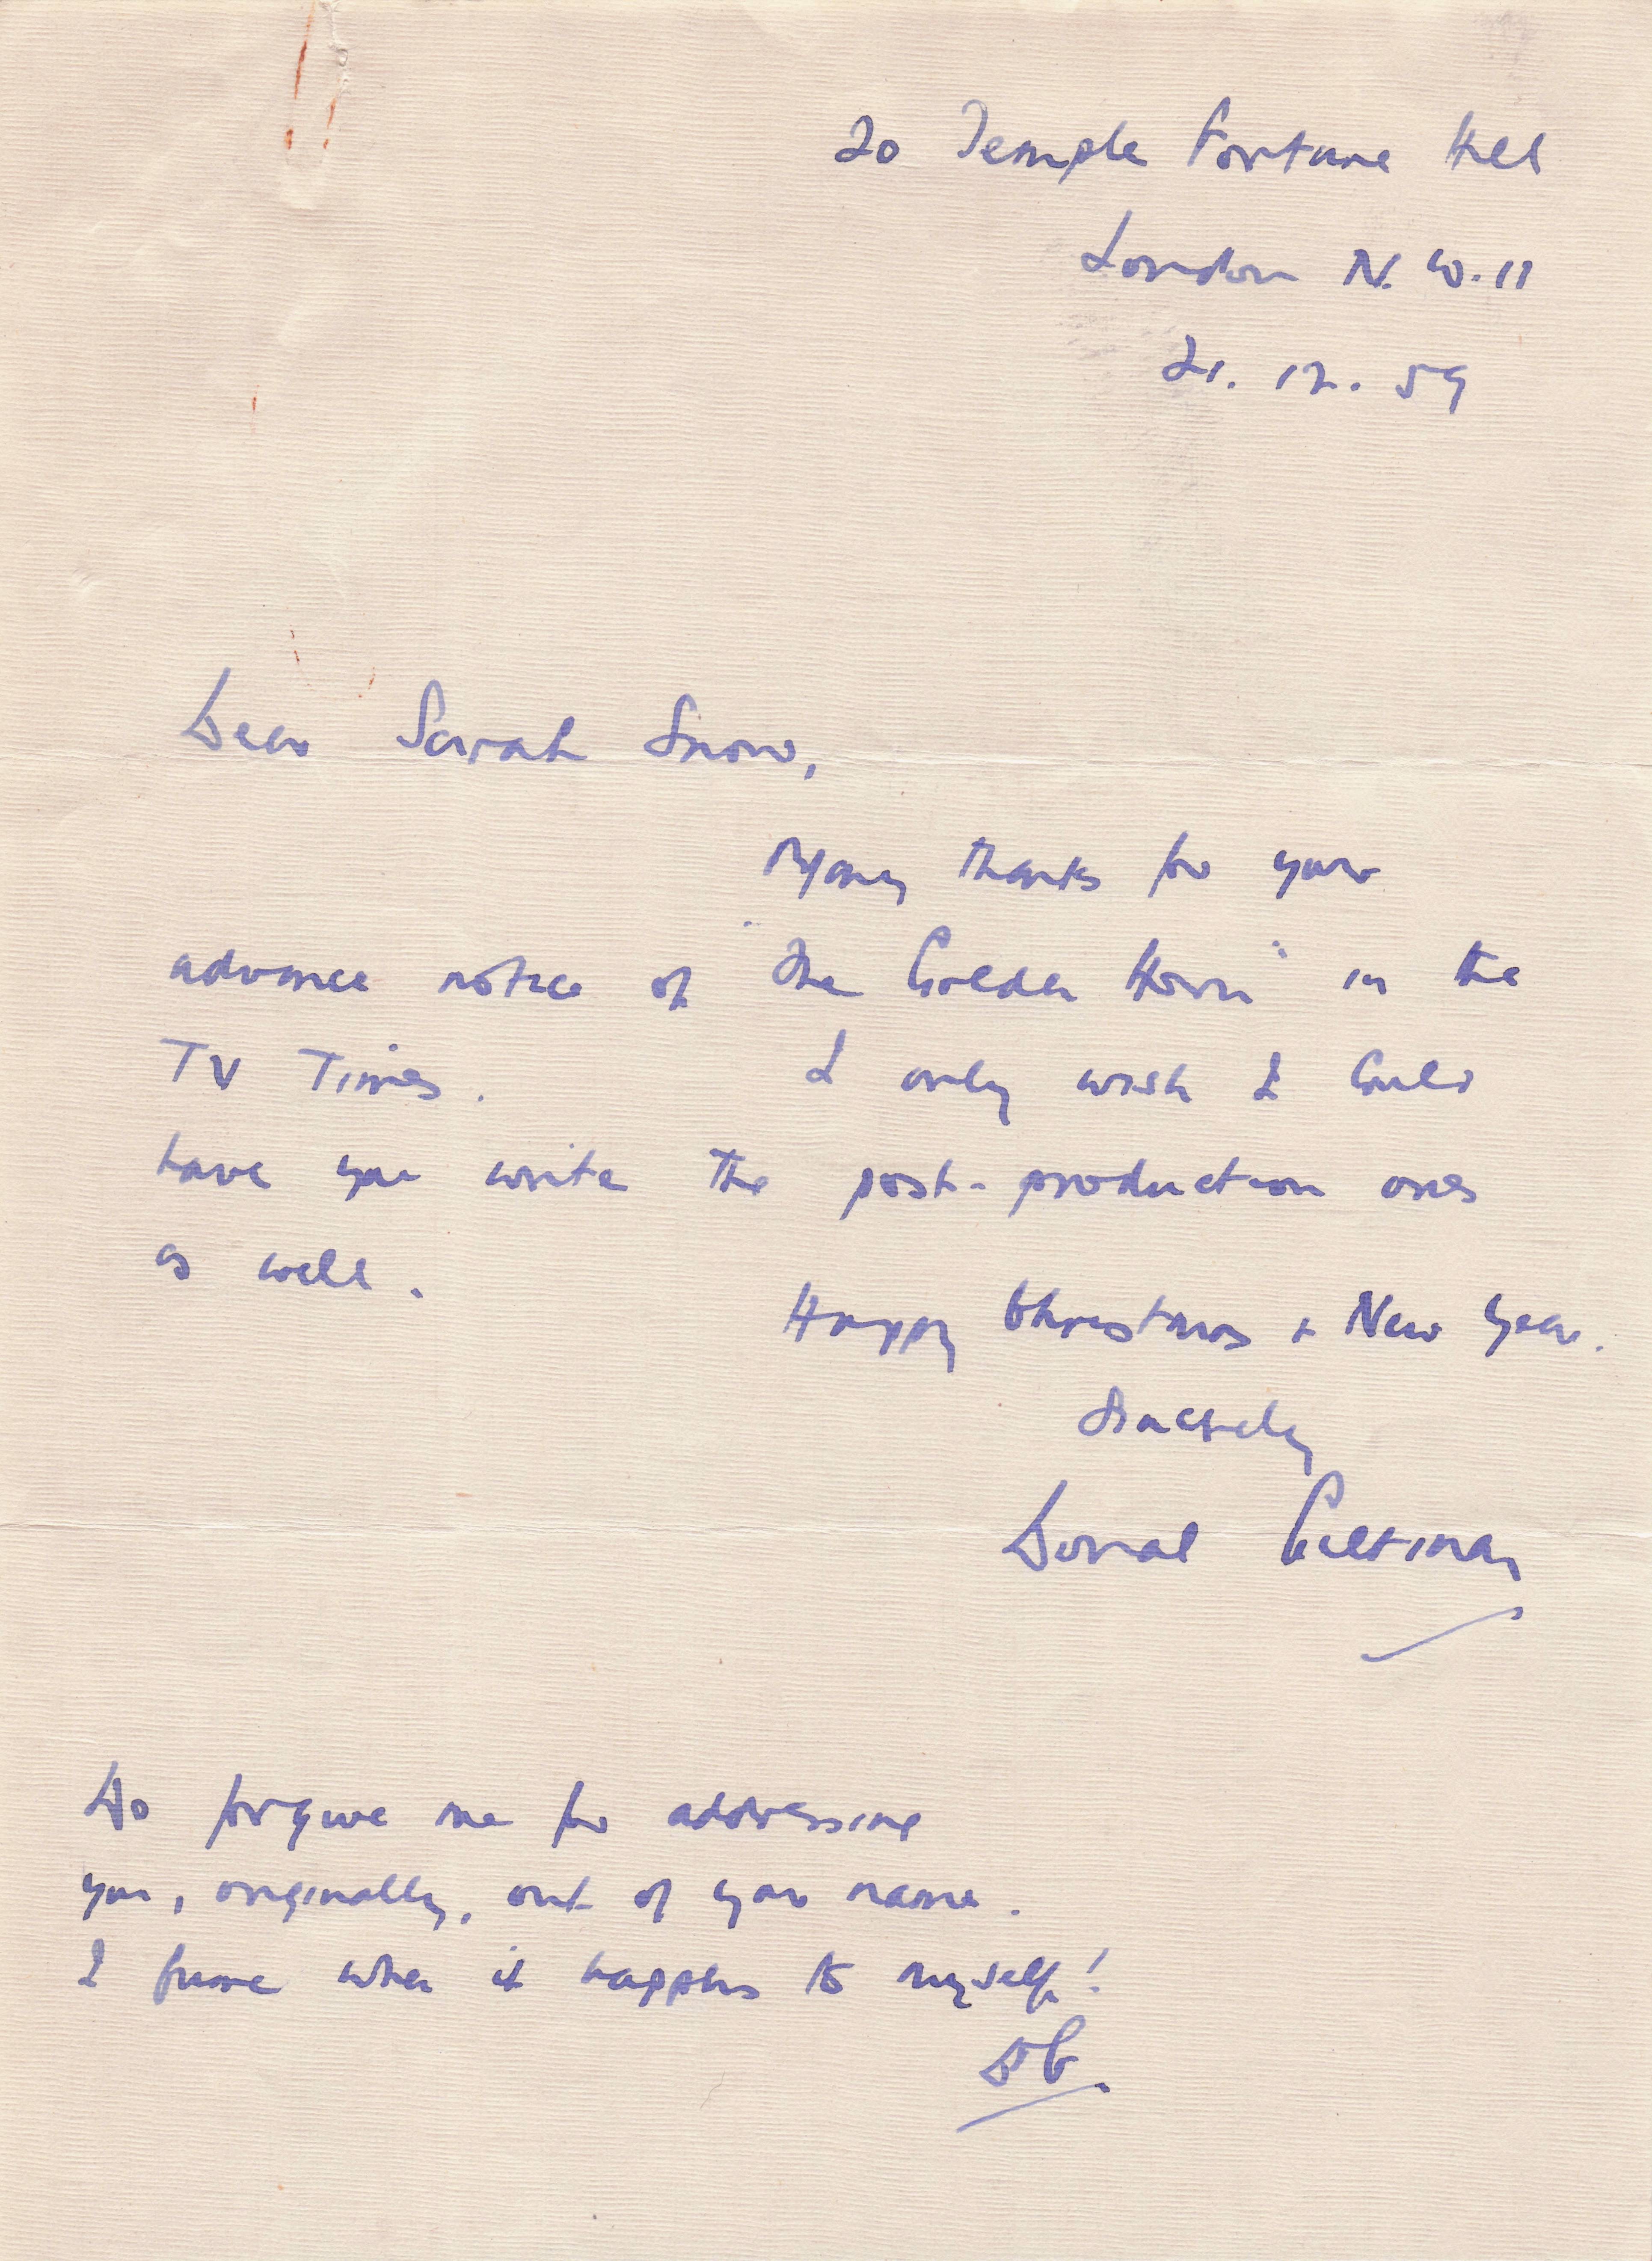 20 Temple Fortune Hill
London N.W.11
21.12.59
Dear Sarah Snow,
Many thanks for your
advance notice of "The Golden Horn" in the
TV Times. I only wish I could
have you write the post-production ones
as well.
Happy Christmas + New Year.
Sincerely
Donal Giltinan
Do forgive me for addressing
you, originally, out of your name.
I fume when it happens to myself!
DG.